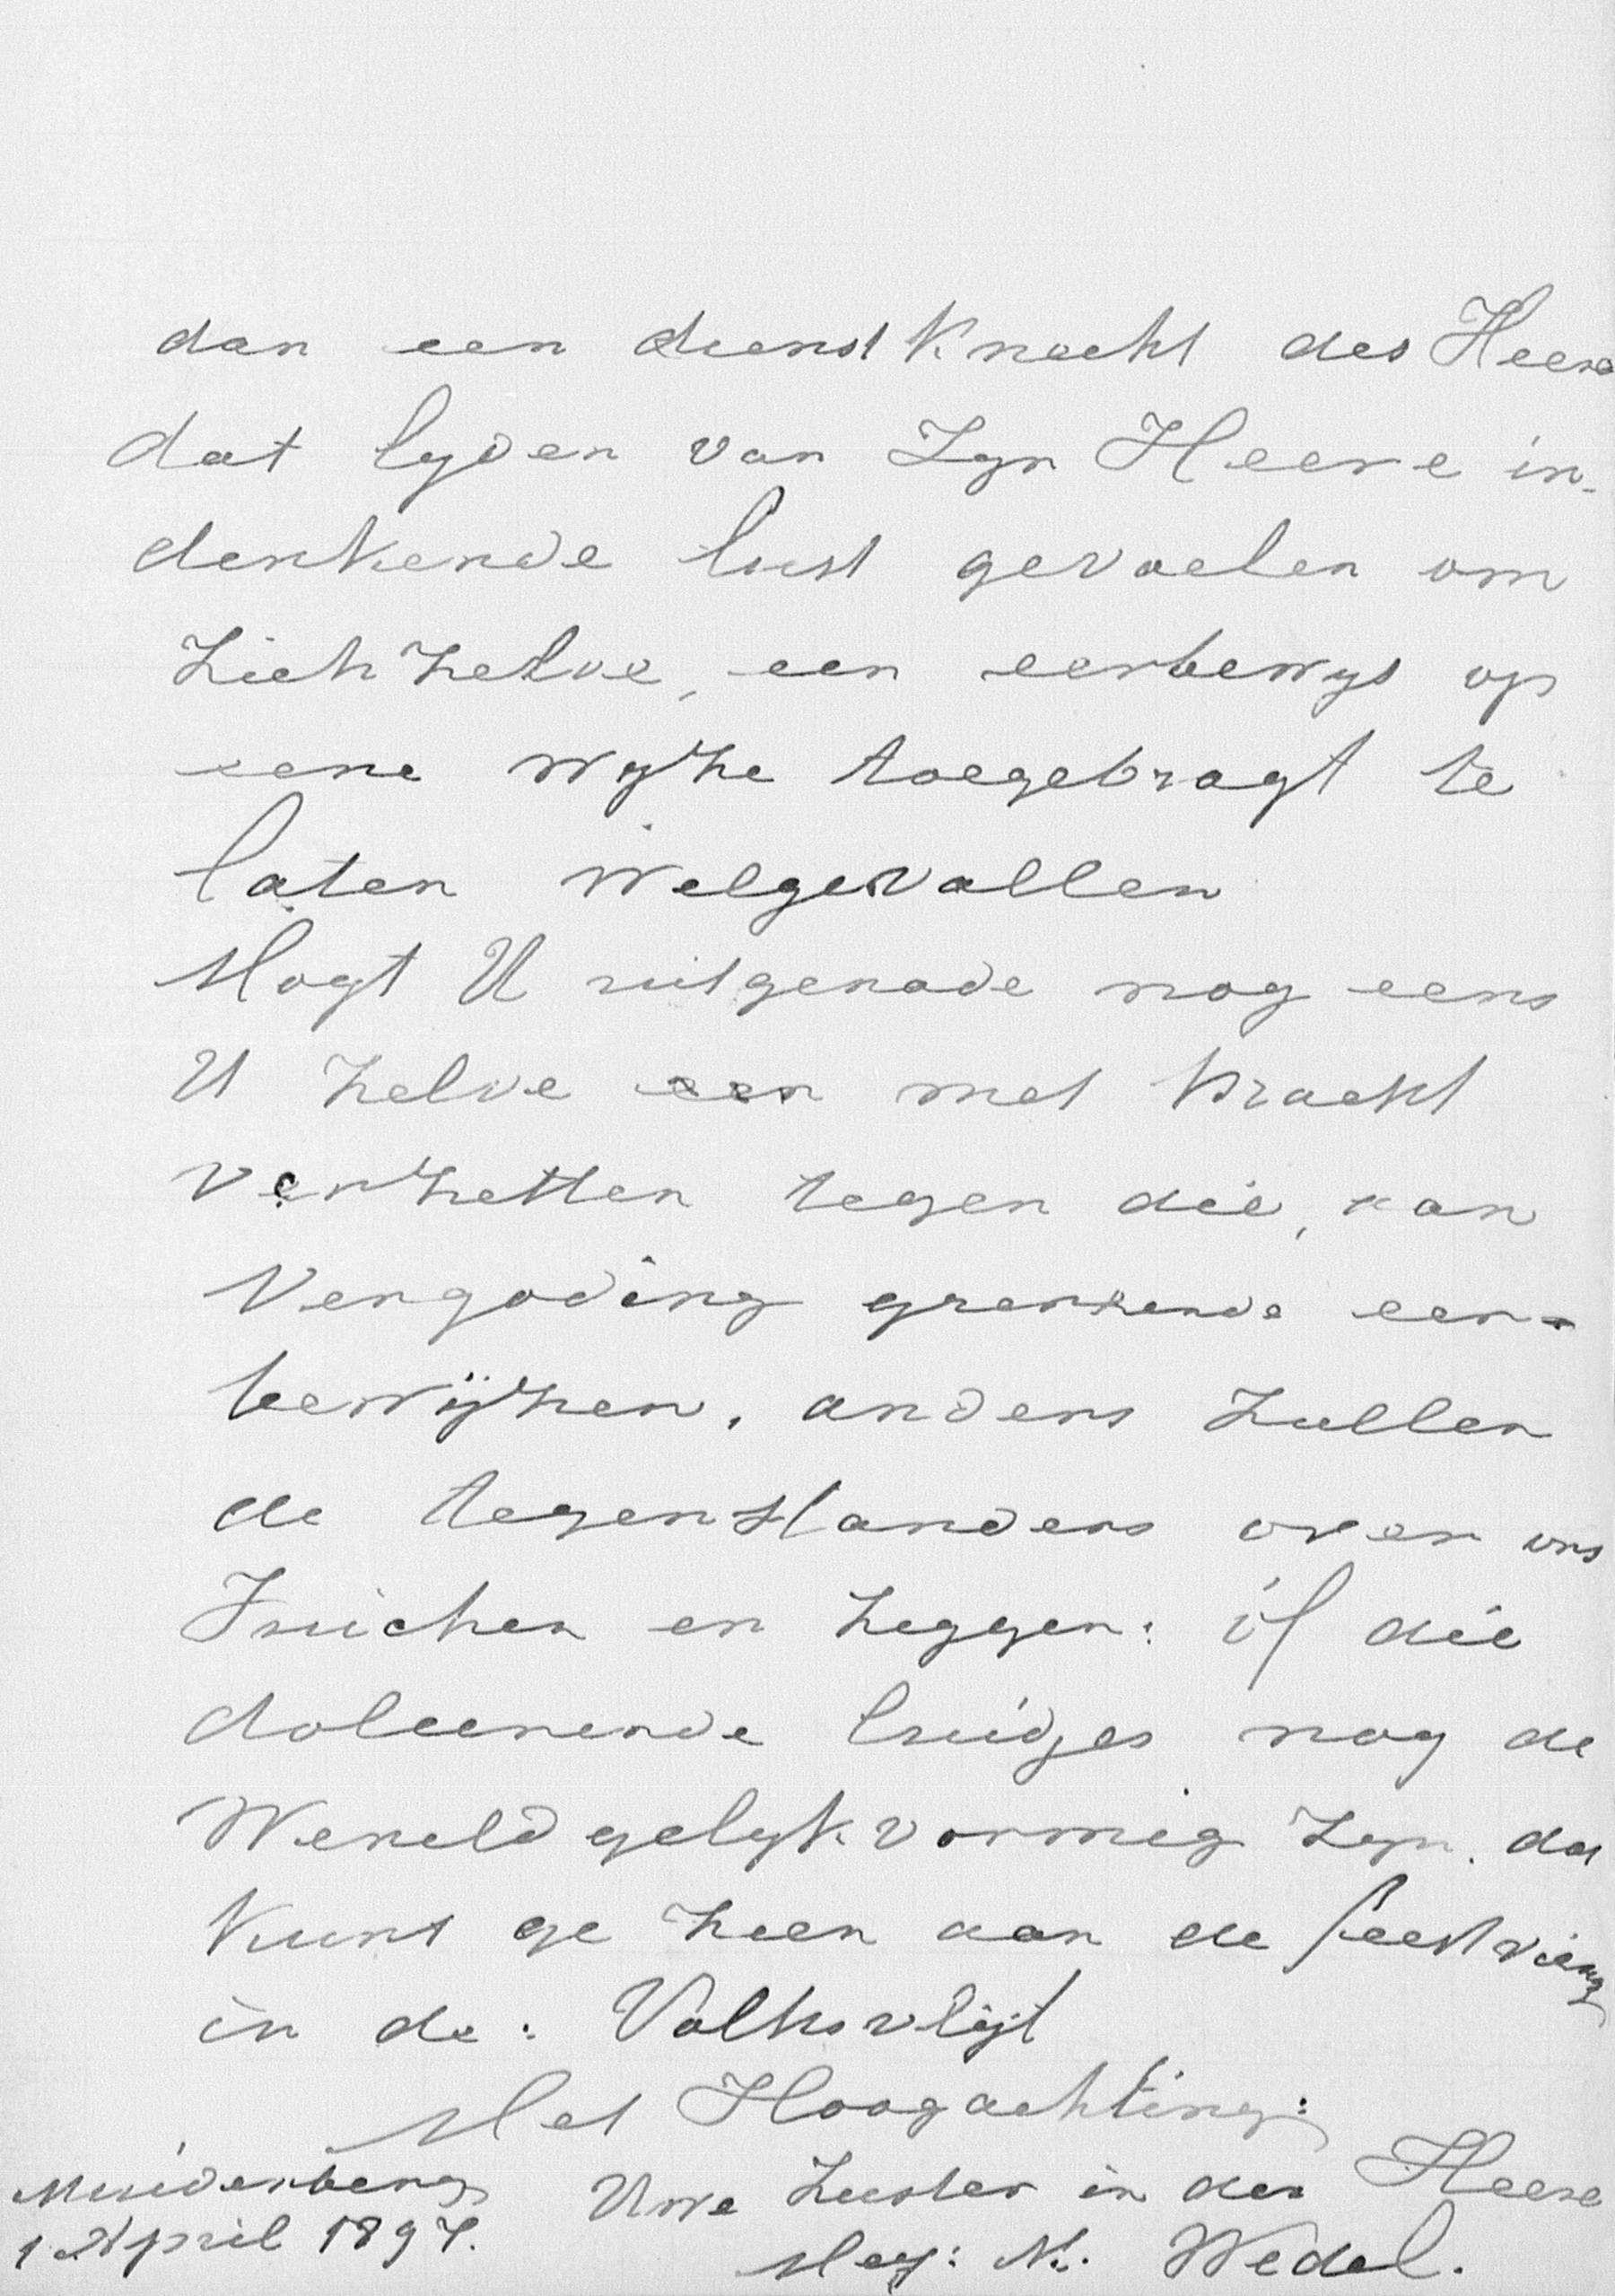 dan een dienst Knecht des Heere
dat lyden van Zyn Heere in-
denkende lust gevoelen om
Zich zelve, een eerbewys op
eene wyze toegebragt te
laten welgevallen
Mogt U uit genade nog eens
U zelve een met Kracht
verzetten tegen die, aan
Vergoding grenzende eer-
bewijzen, anders zullen
de tegenstanders over ons
Juichen en zeggen: of die
doleerende luidjes nog de
Wereld gelykvormig zyn, dat
Kunt ge zien aan de feestviering
in de: Volksvlijt
Met Hoogachting:
Muiderberg Uwe Zuster in den Heere
1 April 1897. Mej: N. Wedel.